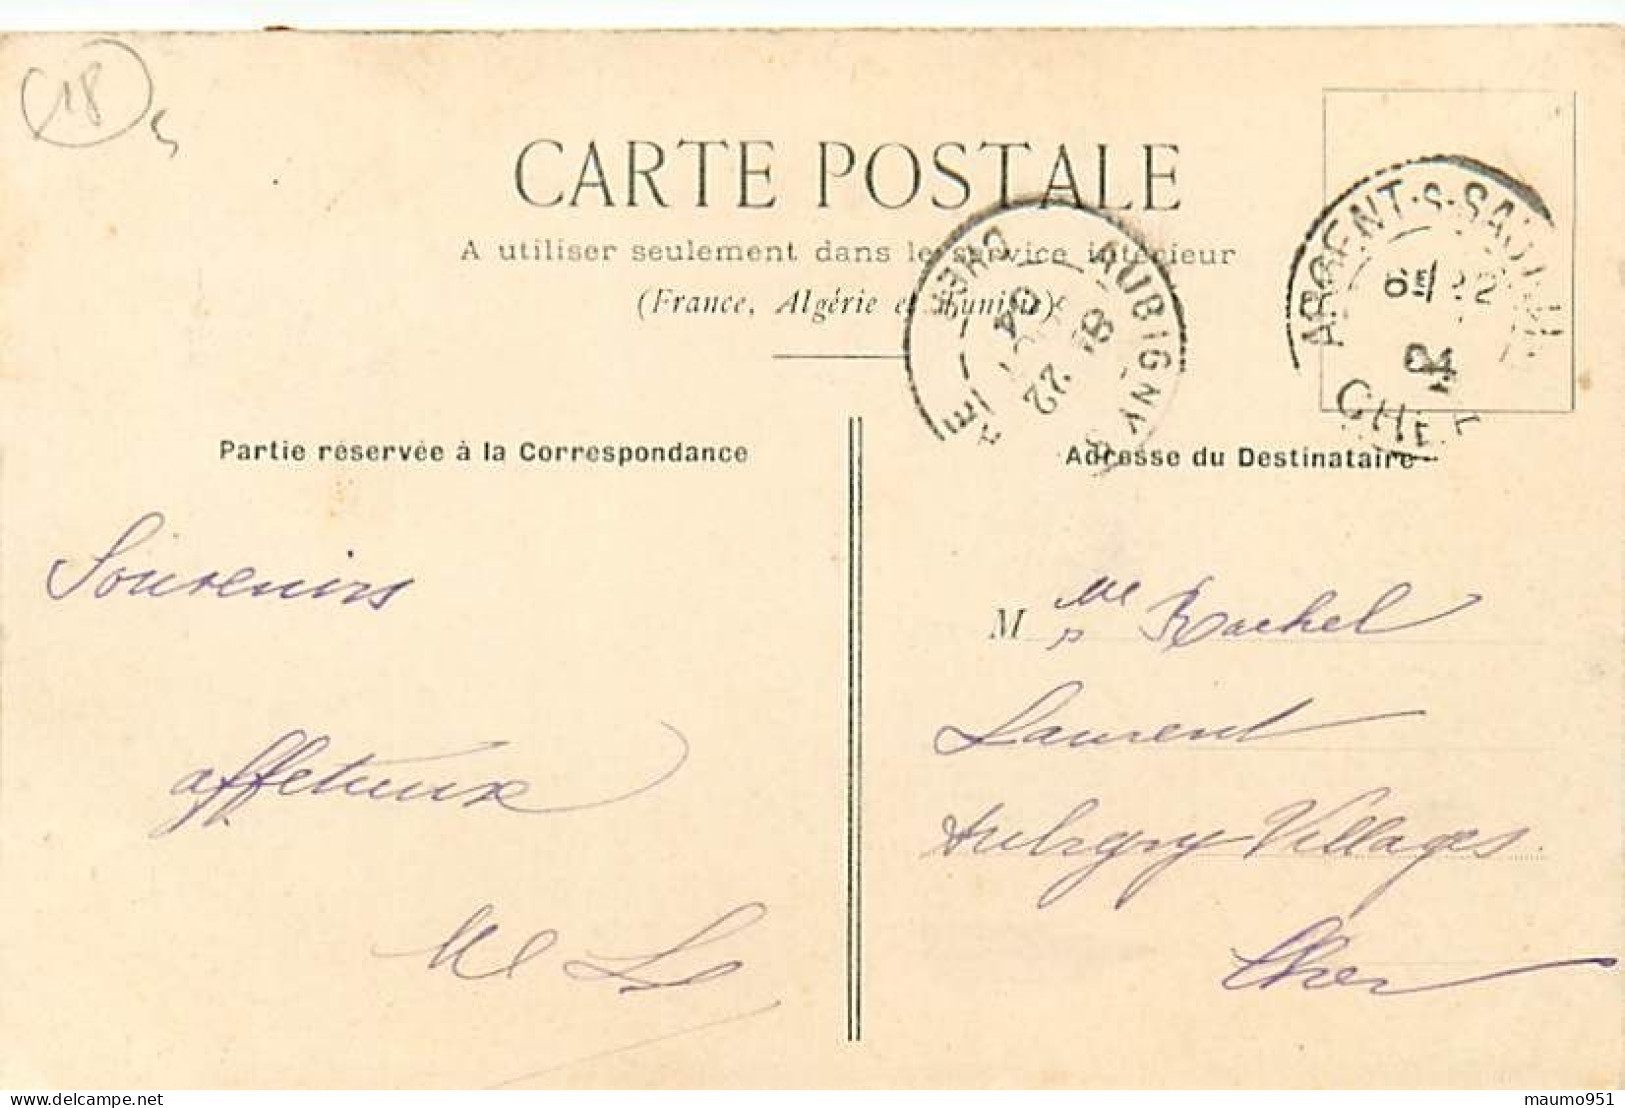 18
CARTE POSTALE
A utiliser seulement dans le service intérieur
(France, Algérie et Tunisie)
CHER AUBIGNY S
22
04
ARGENT-S-SAULD
6E 22
04
CHER
Partie réservée à la Correspondance
Adresse du Destinataire
Souvenirs
affetueux
M L
M elle Rachel
Laurent
Aubigny Villages
Cher
Delcampe.net
maumo951